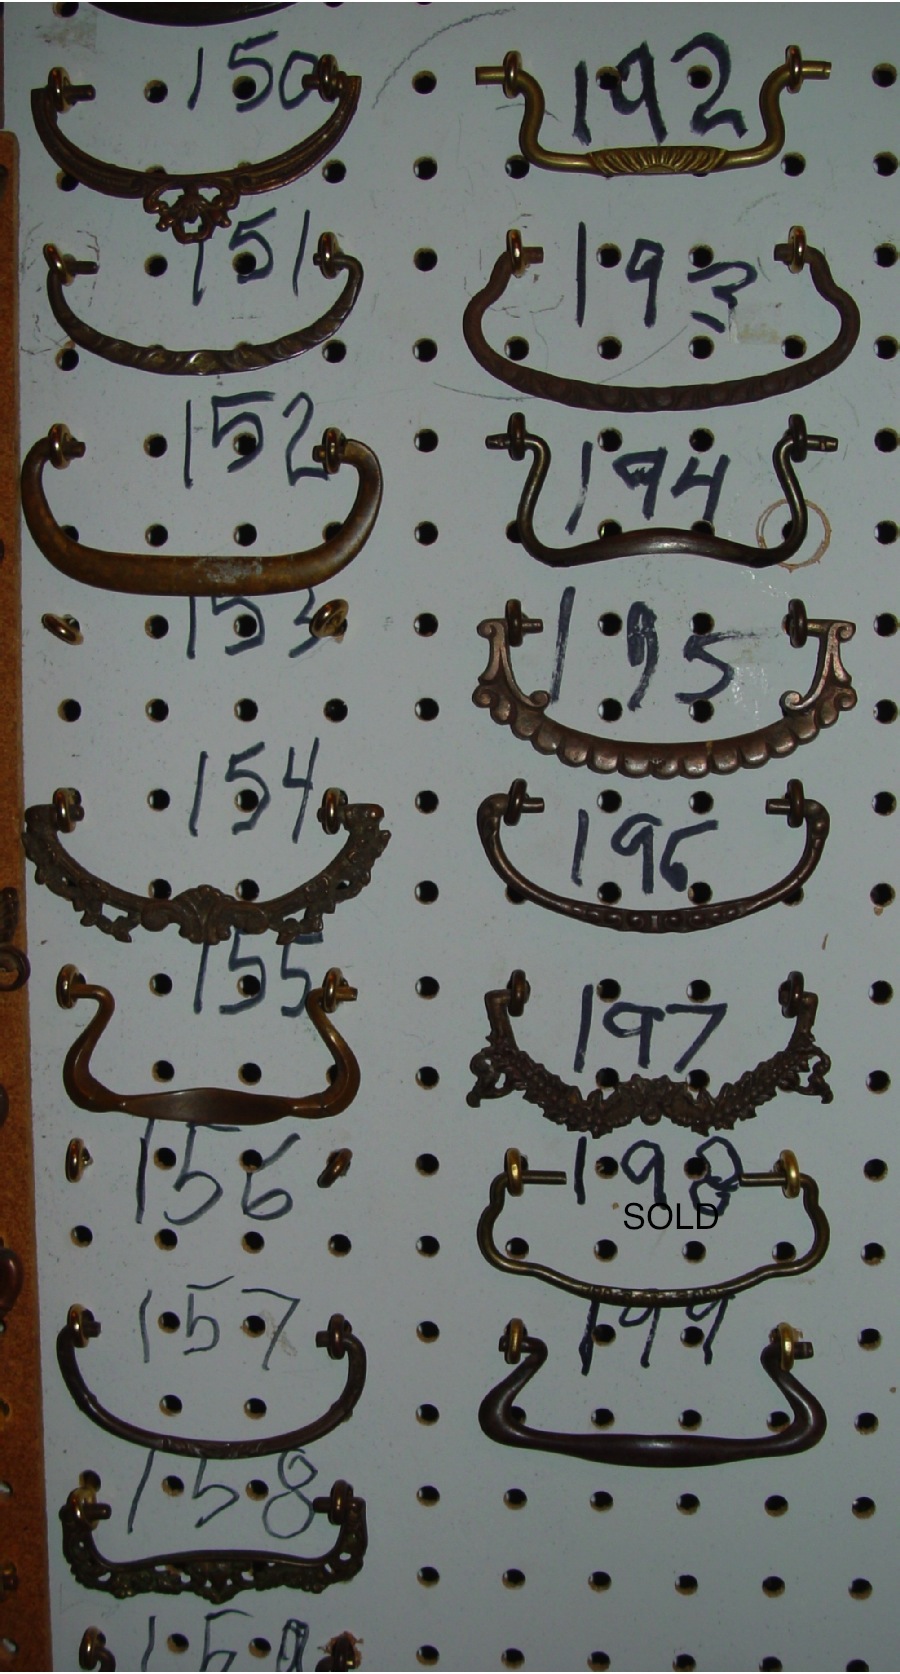 150
151
152
153
154
155
156
157
158
159
192
193
194
195
196
197
198
SOLD
199